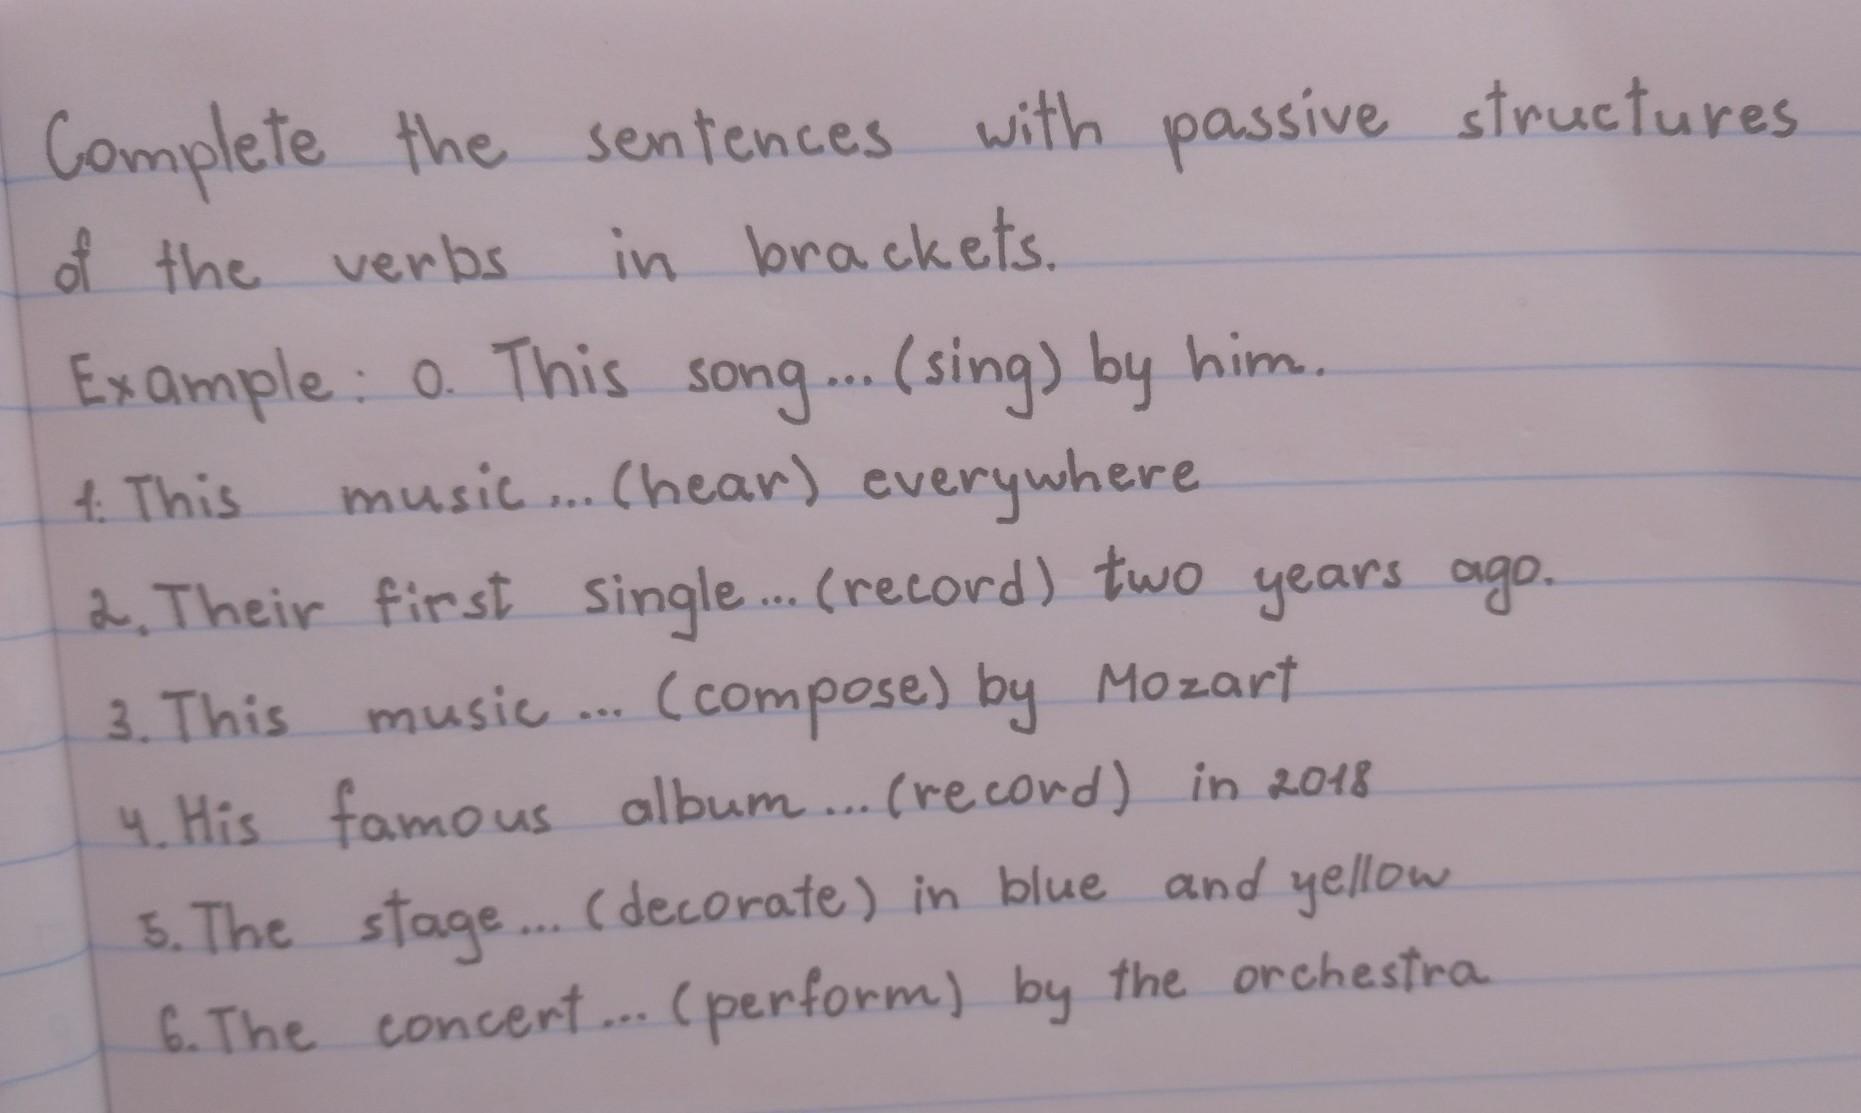 Complete the sentences with passive structures
of the verbs in brackets.
Example: 0. This song... (sing) by him.
1. This music... (hear) everywhere
2. Their first single... (record) two years ago.
3. This music... (compose) by Mozart
4. His famous album... (record) in 2018
5. The stage... (decorate) in blue and yellow
6. The concert... (perform) by the orchestra